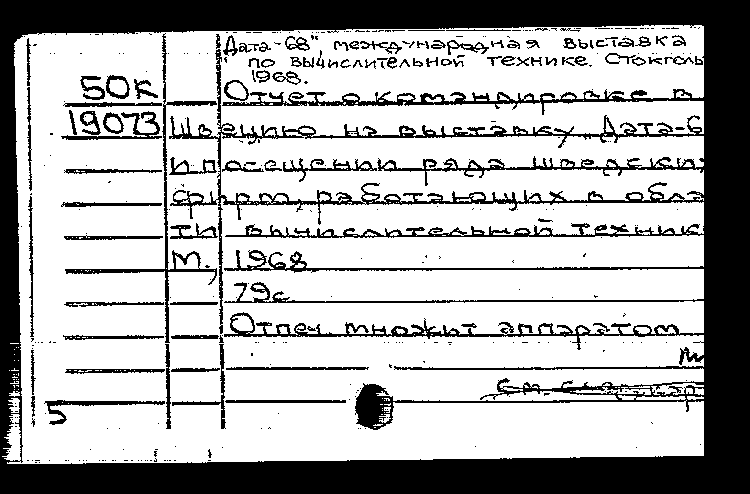 „Дата-68", международная выставка
по вычислительной технике. Стокголь
1968.
50к Отчет о командировке в
19073 Швецию на выставку „Дата-6
и посещении ряда шведских
фирм, работающих в обла
ти вычислительной техник
М., 1968
79с.
Отпеч. множит аппаратом
См.
5